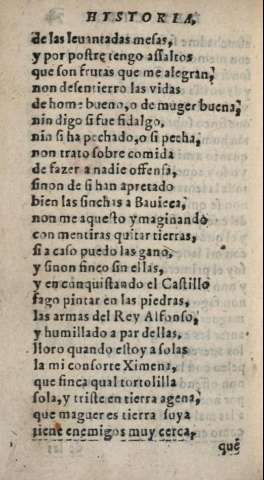 HYSTORIA,
de las leuantadas mesas,
y por postre tengo assaltos
que son frutas que me alegran,
non desentierro las vidas
de home bueno, o de muger buena,
nin digo si fue fidalgo,
nin si ha pechado, o si pecha,
non trato sobre comida
de fazer a nadie offensa,
sinon de si han apretado
bien las sinchas a Bauieca,
non me aquesto ymaginando
con mentiras quitar tierras,
si a caso puedo las gano,
y sinon finco sin ellas,
y en conquistando el Castillo
fago pintar en las piedras,
las armas del Rey Alfonso,
y humillado a par dellas,
lloro quando estoy a solas
la mi consorte Ximena,
que finca qual tortolilla
sola, y triste en tierra agena,
que maguer es tierra suya
tiene enemigos muy cerca,
que